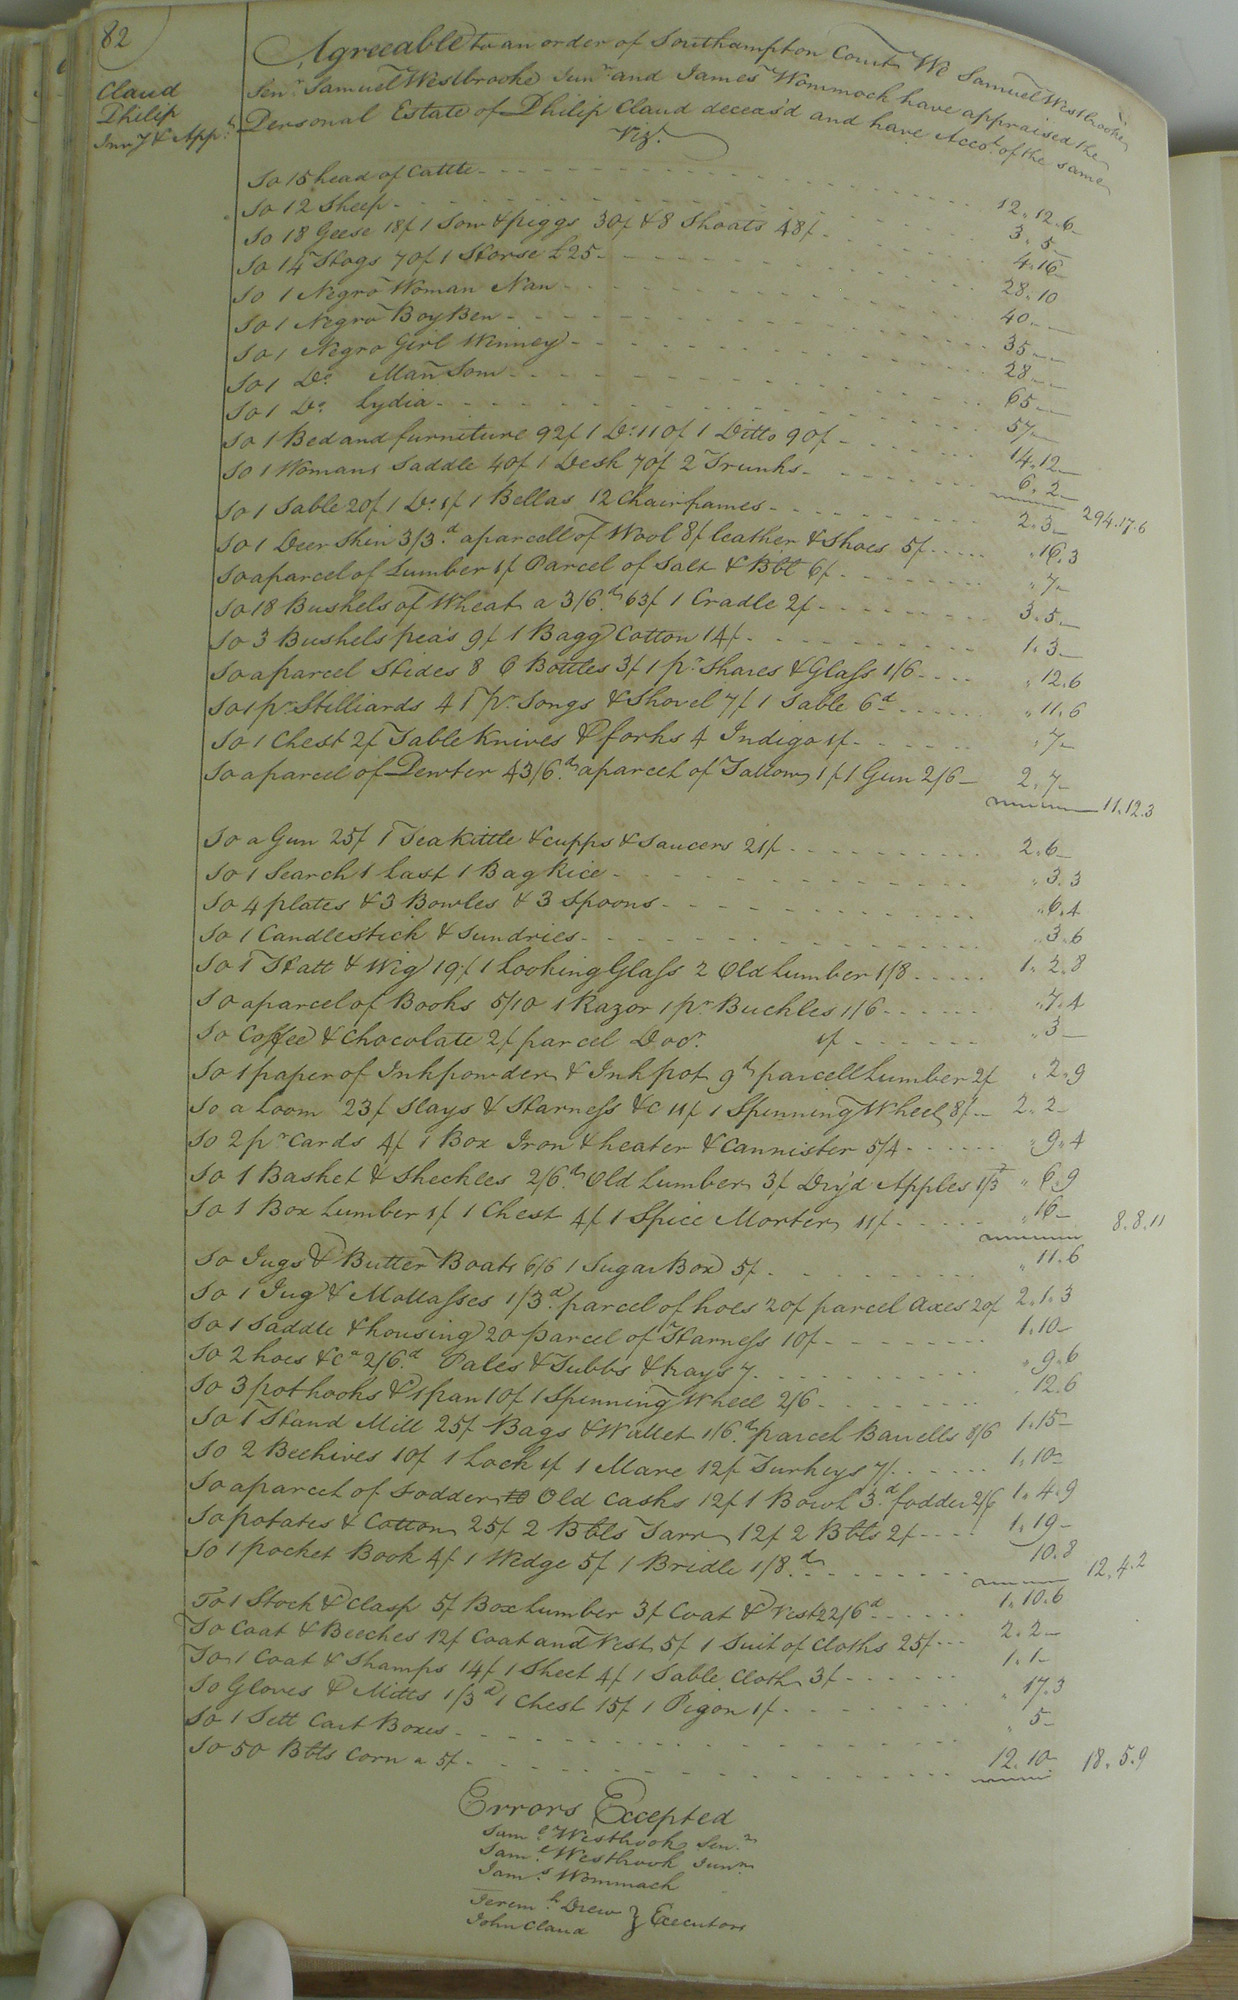 82
Claud
Philip
Inv.y & App.t
Agreeable to an order of Southampton Court We Samuel Westbrooke
Sen.r Samuel Westbrooke Jun.r and James Wommack have appraised the
Personal Estate of Philip Claud deceas'd and have Acco.t of the same
Viz.t
To 15 head of Cattle 12.12.6
To 12 Sheep 3.5
To 18 Geese 18/ 1 Sow & piggs 30/ & 8 Shoats 48/ 4.16
To 14 Hogs 70/ 1 Horse £25 28.10
To 1 Negro Woman Nan 40
To 1 Negro Boy Ben 35
To 1 Negro Girl Winney 28
To 1 Do. Man Tom 65
To 1 Do. Lydia 57
To 1 Bed and furniture 92/ 1 Do. 110/ 1 Ditto 90/ 14.12
To 1 Womans Saddle 40/ 1 Desk 70/ 2 Trunks 6.2
294.17.6
To 1 Table 20/ 1 Do. 1/ 1 Bellas 12 Chair frames 2.3
To 1 Deer Skin 3/3.d a parcell of Wool 8/ leather & Shoes 5/ 16.3
To a parcel of Lumber 1/ Parcel of Salt & Bbl 6/ 7
To 18 Bushels of Wheat a 3/6.d 63/ 1 Cradle 2/ 3.5
To 3 Bushels pea's 9/ 1 Bagg Cotton 14/ 1.3
To a parcel Hides 8 6 Bottles 3/ 1 p.r Shares & Glass 1/6 12.6
To 1 p.r Stilliards 4 1 p.r Tongs & Shovel 7/ 1 Table 6d 11.6
To 1 Chest 2/ Table Knives & forks 4 Indigo 1/ 7
To a parcel of Pewter 43/6.d a parcel of Tallow 1/ 1 Gun 2/6 2.7
11.12.3
To a Gun 25/ 1 Tea Kittle & cupps & Saucers 21/ 2.6
To 1 Search 1 Last 1 Bag Rice 3.3
To 4 plates & 3 Bowles & 3 Spoons 6.4
To 1 Candlestick & Sundries 3.6
To 1 Hatt & Wig 19/ 1 Looking Glass 2 Old Lumber 1/8 1.2.8
To a parcel of Books 5/10 1 Razor 1 p.r Buckles 1/6 7.4
To Coffee & Chocolate 2/ parcel Do 1/ 3
To 1 paper of Inkpowder & Inkpot 9d parcell Lumber 2/ 2.9
To a Loom 23/ Slays & Harness &c 11/ 1 Spinning Wheel 8/ 2.2
To 2 p.r Cards 4/ 1 Box Iron & heater & Cannister 5/4 9.4
To 1 Basket & Sheckles 2/6.d Old Lumber 3/ Dry'd Apples 1/3 6.9
To 1 Box Lumber 1/ 1 Chest 4/ 1 Spice Morter 11/ 16
8.8.11
To Jugs & Butter Boats 6/6 1 Sugar Box 5/ 11.6
To 1 Jug & Mollasses 1/3.d parcel of hoes 20/ parcel axes 20/ 2.1.3
To 1 Saddle & housing 20 parcel of Harness 10/ 1.10
To 2 hoes &c.a 2/6.d Pales & Tubbs & trays 7 9.6
To 3 pothooks & 1 pan 10/ 1 Spinning Wheel 2/6 12.6
To 1 Hand Mill 25/ Bags & Wallet 1/6.d parcel Barrells 8/6 1.15
To 2 Beehives 10/ 1 Lock 1/ 1 Mare 12/ Turkeys 7/ 1.10
To a parcel of Fodder to Old Casks 12/ 1 Bowl 3.d fodder 2/6 1.4.9
To potates & Cotton 25/ 2 Bbls Tarr 12/ 2 Bbls 2/ 1.19
To 1 pocket Book 4/ 1 Wedge 5/ 1 Bridle 1/8.d 10.8
12.4.2
To 1 Stock & Clasp 5/ Box Lumber 3/ Coat & Vest 22/6d 1.10.6
To Coat & Beeches 12/ Coat and Vest 5/ 1 Suit of Cloths 25/ 2.2
To 1 Coat & Shamps 14/ 1 Sheet 4/ 1 Table Cloth 3/ 1.1
To Gloves & Mitts 1/3d 1 Chest 15/ 1 Pigon 1/ 17.3
To 1 Sett Cart Boxes 5
To 50 Bbls Corn a 5/ 12.10
18.5.9
Errors Excepted
Sam.l Westbrook Sen.r
Sam.l Westbrook Jun.r
Jam.s Wommack
Jerem.h Drew } Executors
John Claud